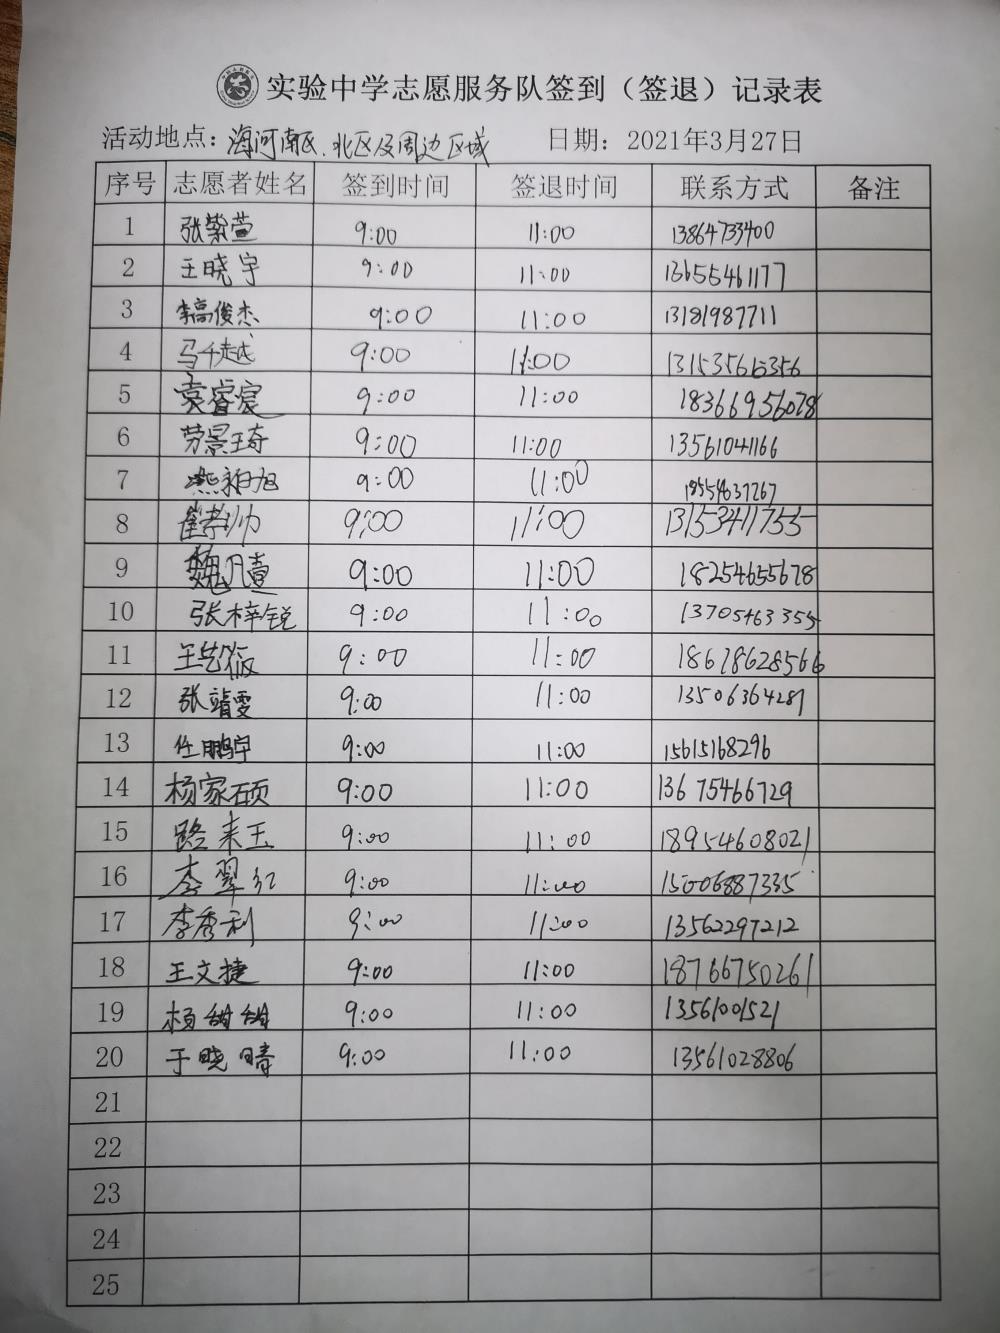 实验中学志愿服务队签到（签退）记录表
活动地点：海河南区、北区及周边区域 日期：2021年3月27日
序号 志愿者姓名 签到时间 签退时间 联系方式 备注
1 张紫萱 9:00 11:00 13864733400
2 王晓宇 9:00 11:00 13655461177
3 李高俊杰 9:00 11:00 13181987711
4 马千越 9:00 11:00 13153565356
5 袁睿宸 9:00 11:00 18366956078
6 劳景琦 9:00 11:00 13561041166
7 9:00 11:00 18554637267
8 崔孝帅 9:00 11:00 13153411755
9 魏凡壹 9:00 11:00 18254655678
10 张梓锐 9:00 11:00 13705463355
11 王艺筱 9:00 11:00 18678628566
12 张靖雯 9:00 11:00 13506364281
13 任鹏宇 9:00 11:00 15615168296
14 杨家硕 9:00 11:00 13675466729
15 路来玉 9:00 11:00 18954608021
16 李翠红 9:00 11:00 15006887335
17 李秀利 9:00 11:00 13562297212
18 王文捷 9:00 11:00 18766750261
19 杨甜甜 9:00 11:00 13561001521
20 于晓晴 9:00 11:00 13561028806
21
22
23
24
25